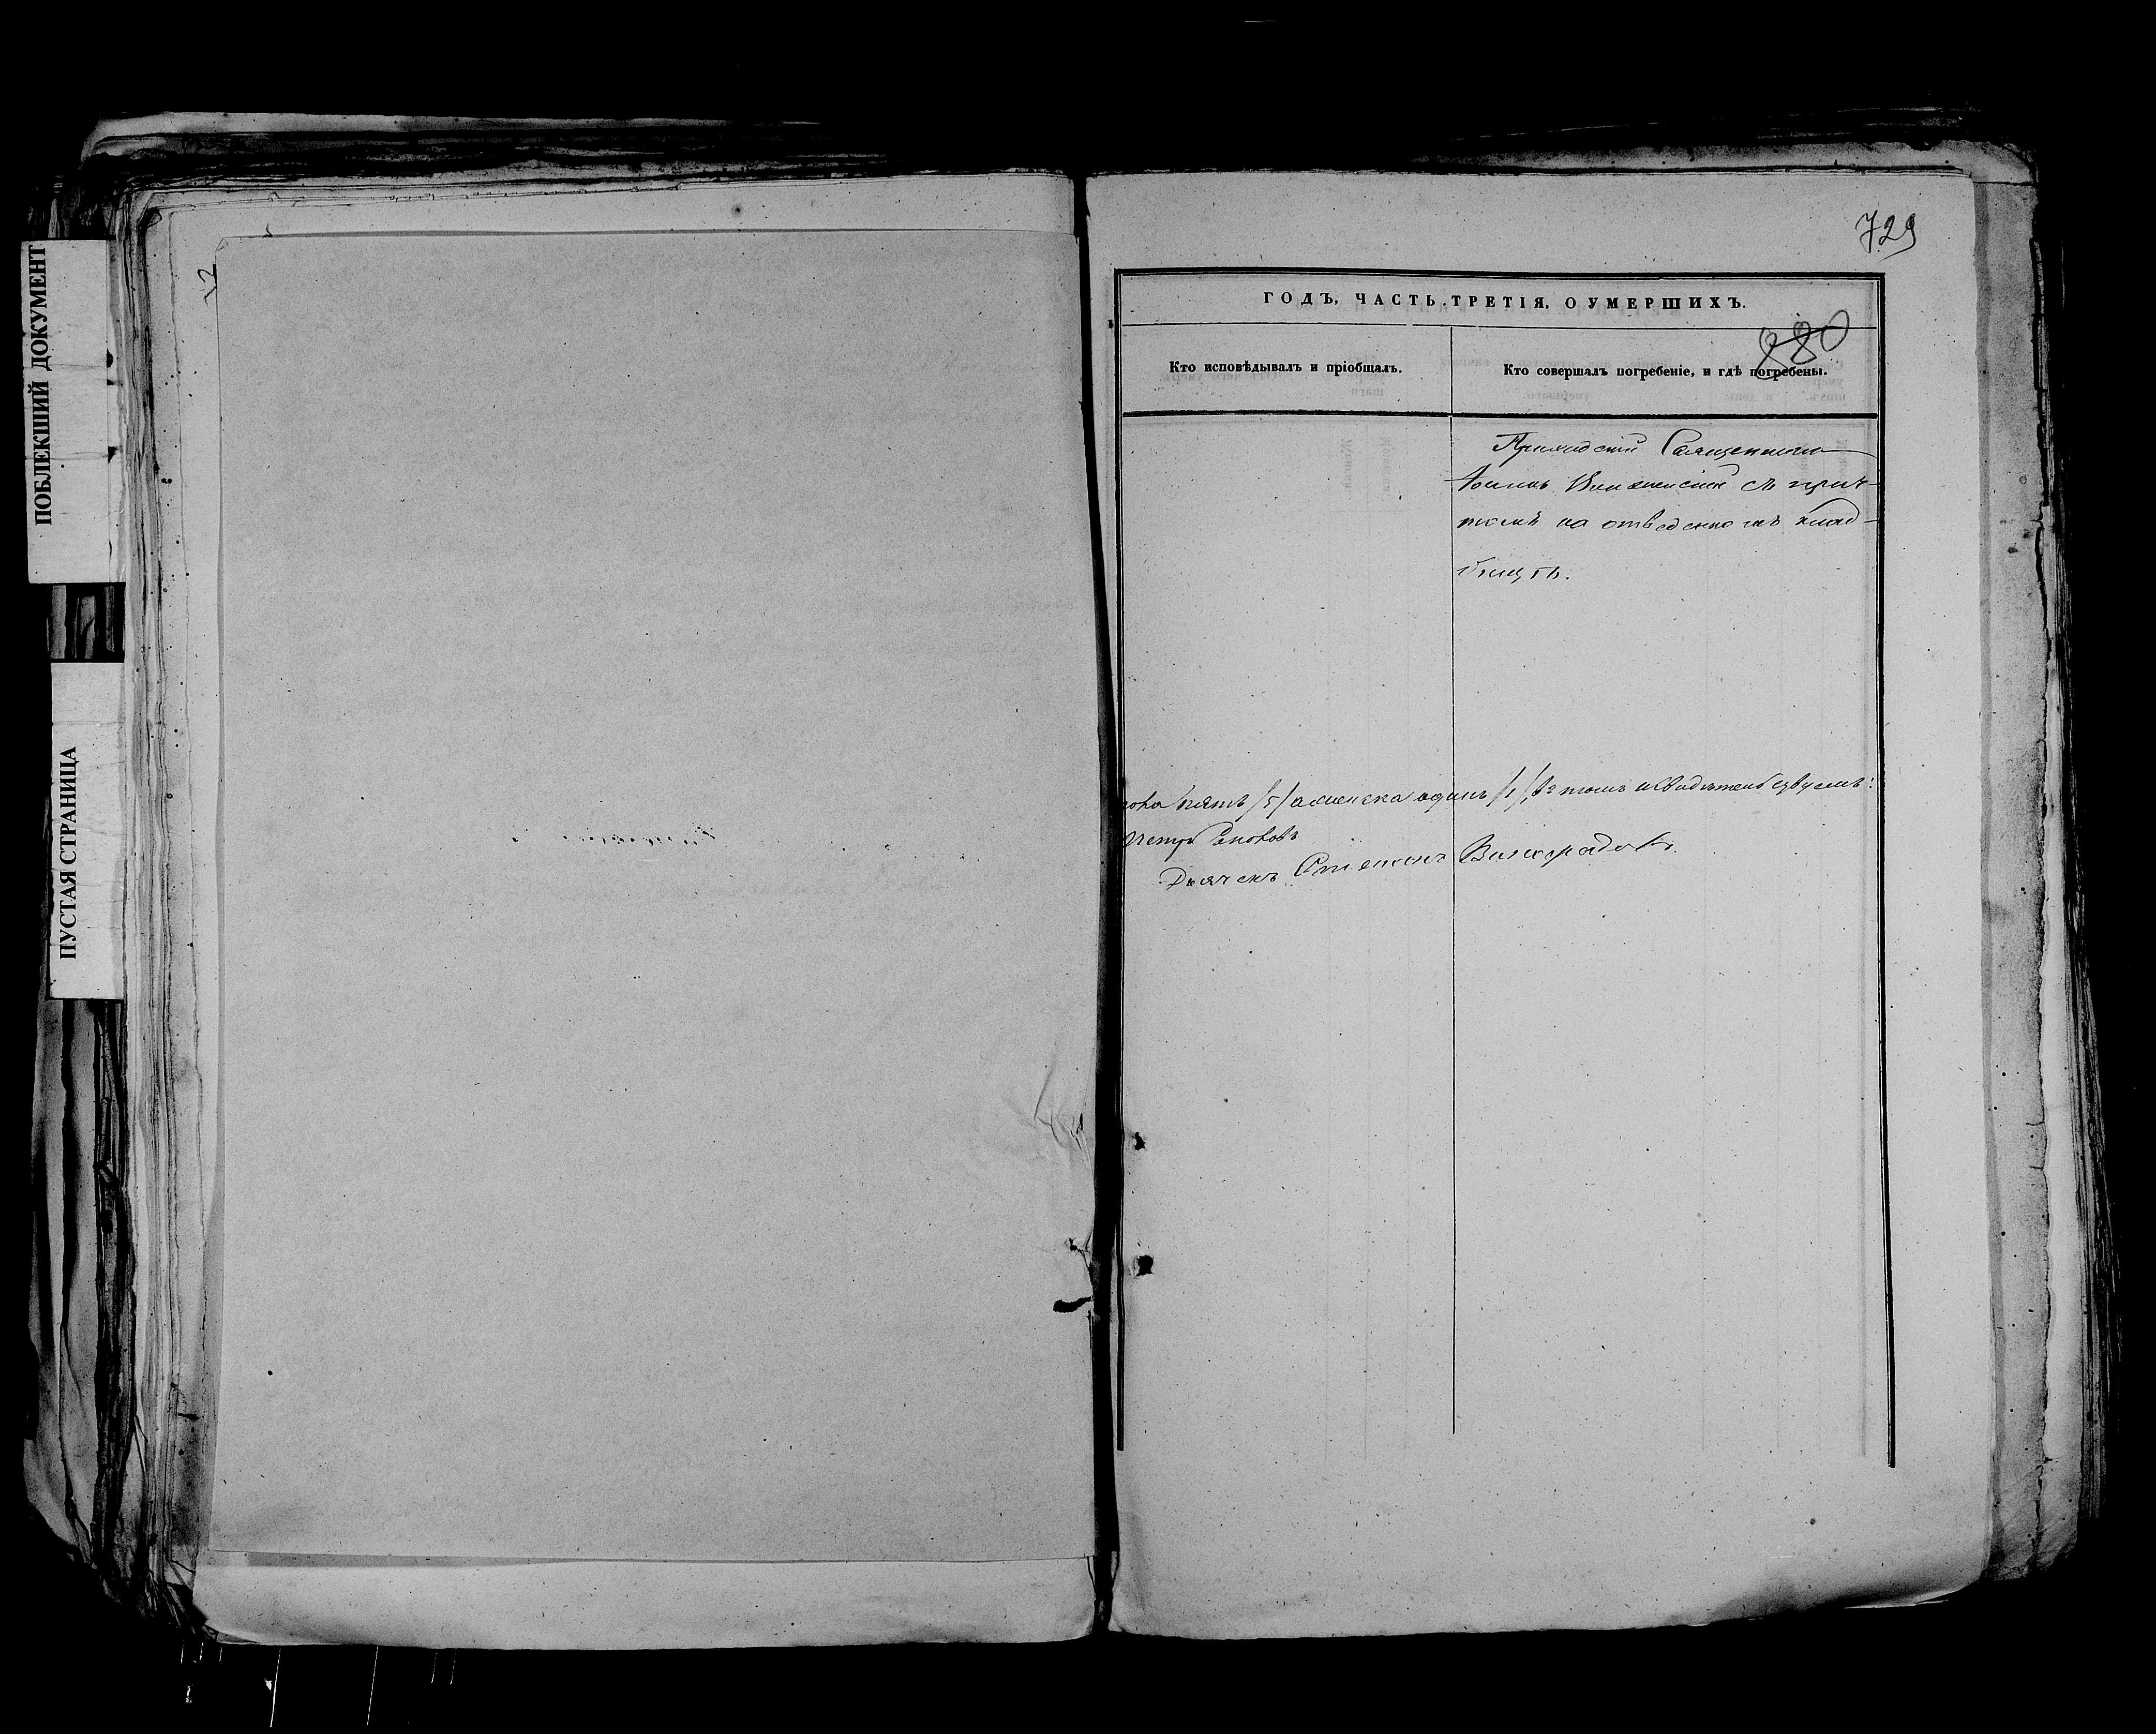 ПОБЛЕКШИЙ ДОКУМЕНТ
ПУСТАЯ СТРАНИЦА
729
ГОДЪ, ЧАСТЬ ТРЕТІЯ, О УМЕРШИХЪ.
880
Кто исповѣдывалъ и пріобщалъ.
Кто совершалъ погребеніе, и гдѣ погребены.
Приходскій Священникъ
Іоаннъ съ прич-
томъ на отведенномъ клад-
бищѣ.
пола пять /5/ а женска одинъ /1/, въ томъ и свидѣтельствуемъ:
Петръ Поповъ
Дьячекъ Стефанъ Виноградовъ